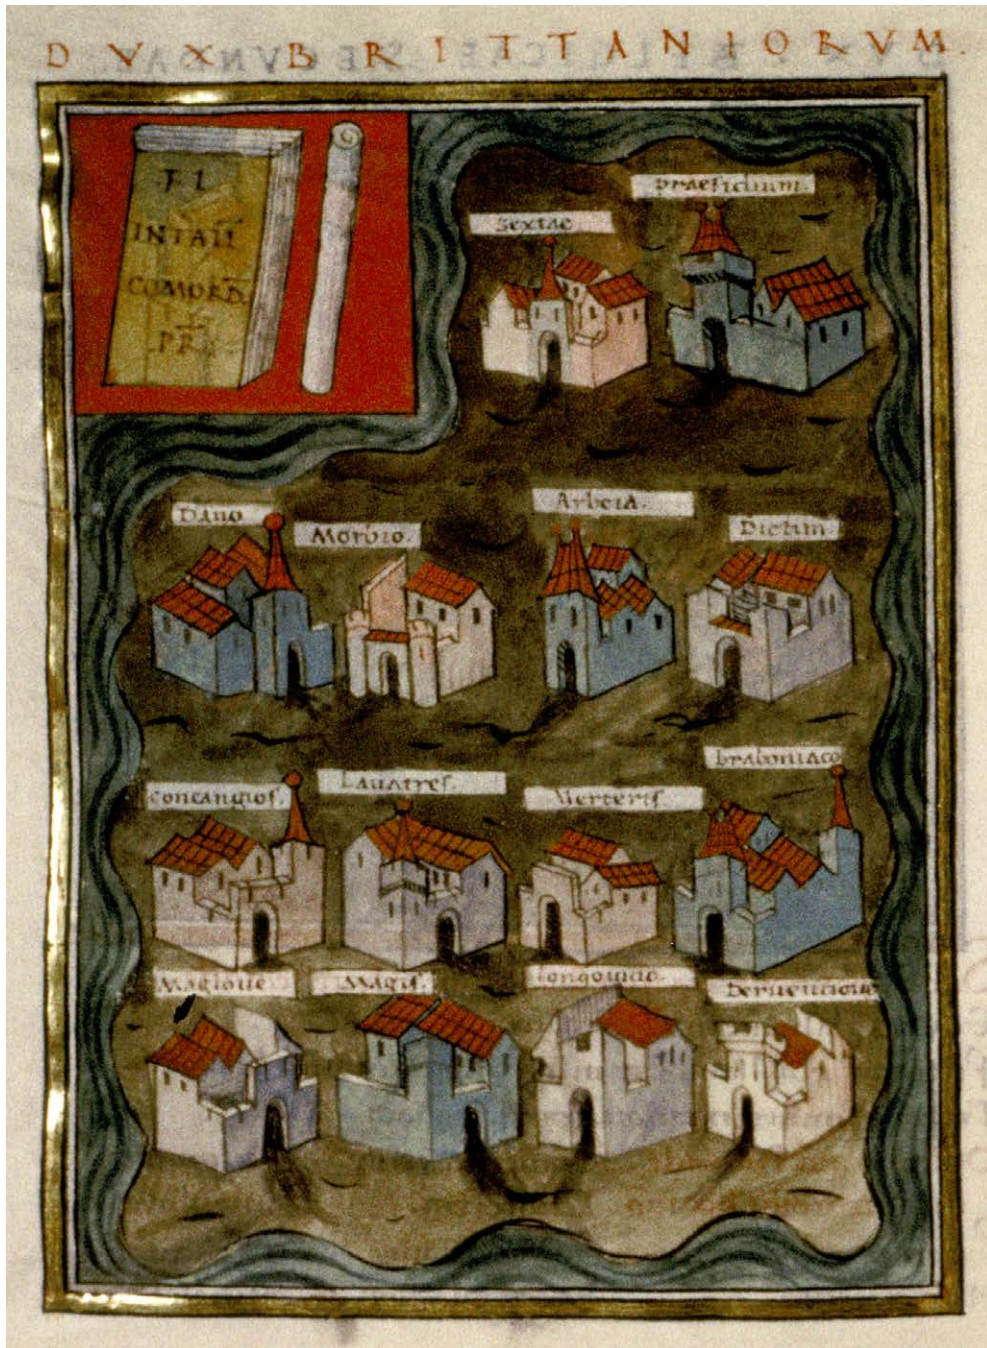 DVX BRITTANIORUM.
FL
INTALL
COMORD
PR
Sextae
Praesidium.
Dano
Morbio.
Arbeia.
Dictim.
Concangios.
Lauatres.
Uerteris.
braboniaco
Magloue
Magis.
longouicio.
Deruencione